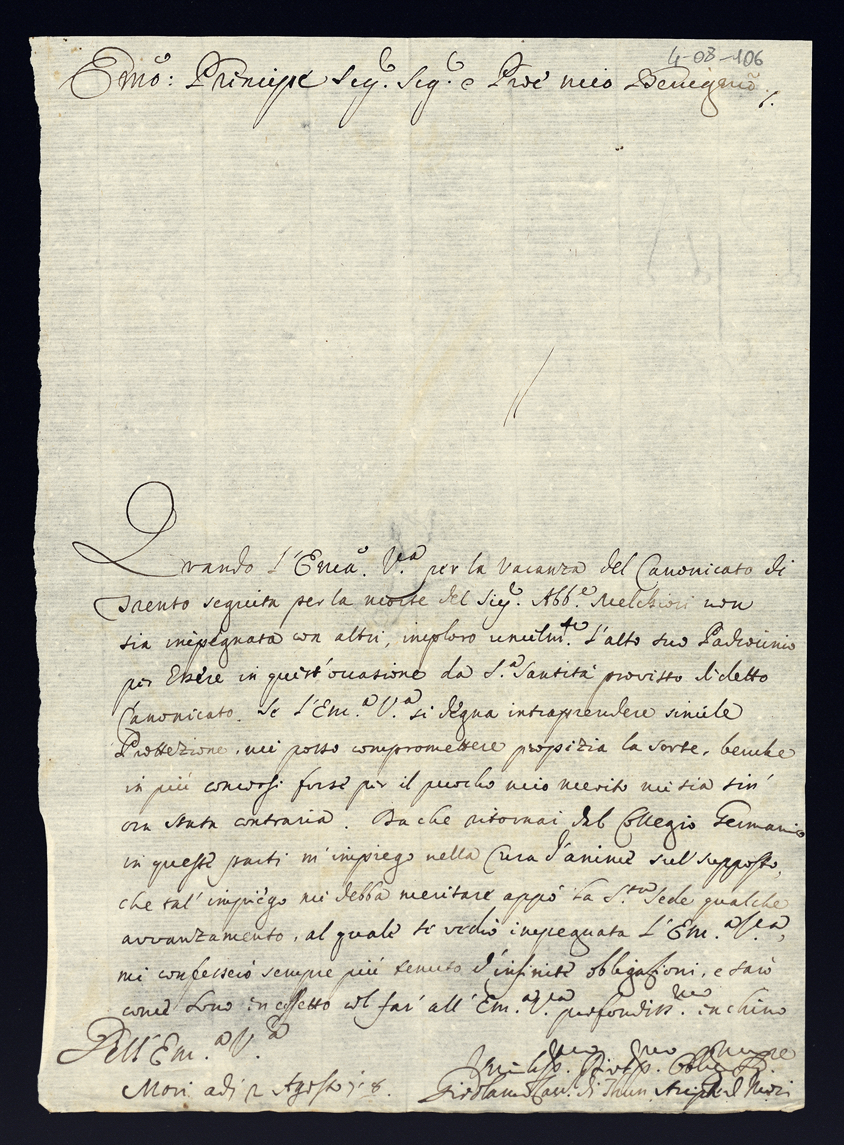 4-08-106
Emo: Principe Sigr. Sigr. e Prõe mio Benigmo
Quando l'Emã. Vra per la vacanza del Canonicato di
Trento seguita per la morte del Sigr. Abbe. Melchiori non
sia impegnata con altri, imploro umilmte. l'alto suo Padrocinio
per Essere in quest'occasione da S.a Santità provisto di detto
Canonicato. Se l'Em.a V.a si degna intraprendere simile
Protezzione, mi posso compromettere propizia la sorte, benche
in più concorsi forse per il puocho mio merito mi sia sin'
ora stata contraria. Da che ritornai dal Collegio Germanico
in queste parti m'impiego nella Cura d'anime sul supposto,
che tal' impiego mi debba meritare appo la S.ta Sede qualche
avvanzamento, al quale se vedrò impegnata L'Em.a V.ra,
mi confesserò sempre più tenuto d'infinite obbligazioni, e sarò
come sono in effetto col far' all'Em.a V.ra profondiss.mo inchino
Dell'Em.a V.ra
Umiliss. Divotiss. Obblig
Mori adi 2 Agosto
Girolamo Con. di Thun Arcip. di Mori